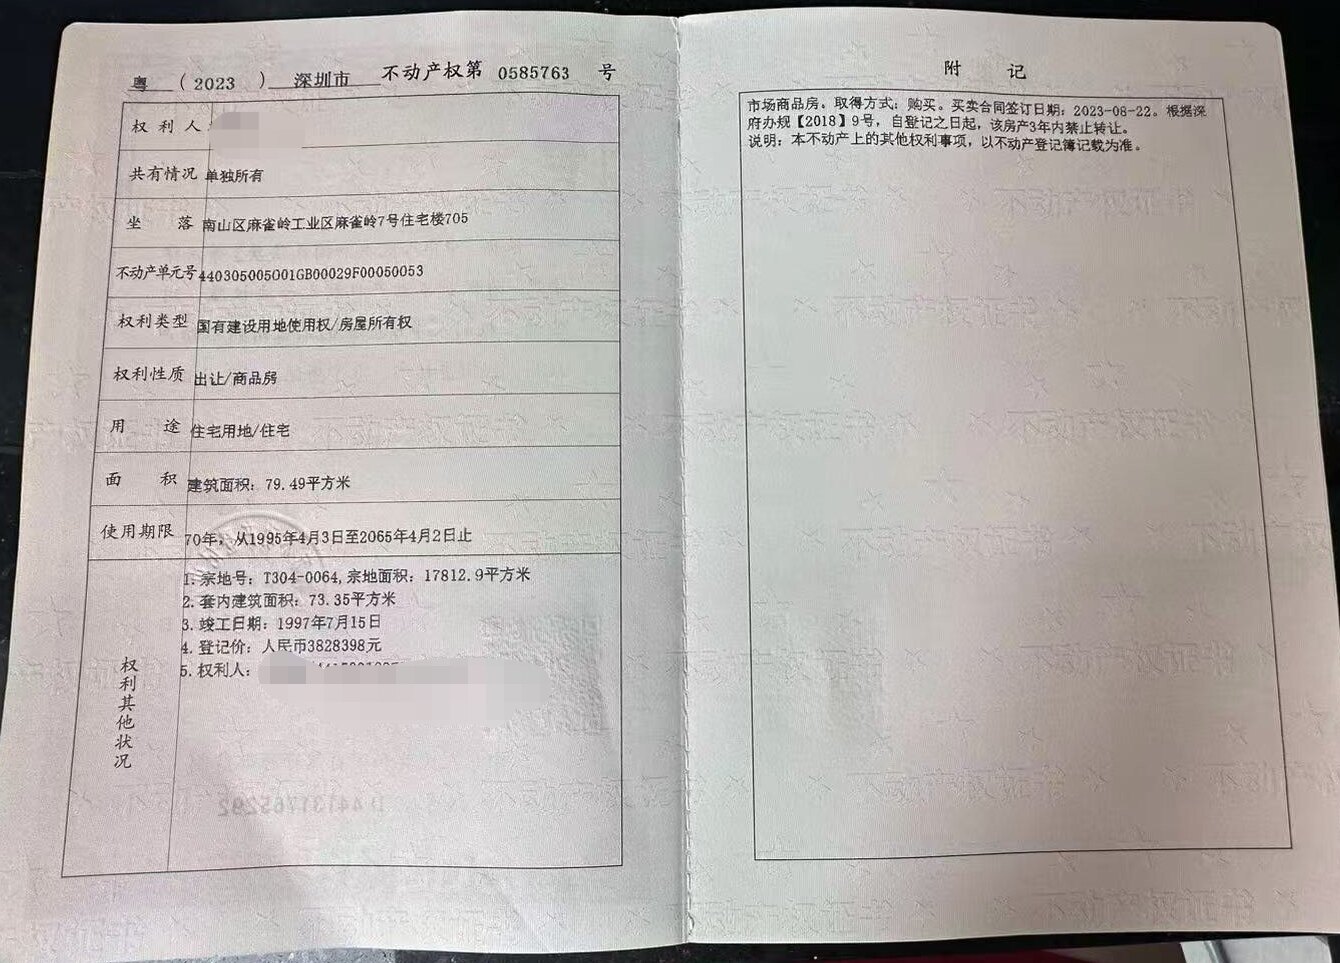 粤 (2023) 深圳市 不动产权第 0585763 号
权利人
共有情况 单独所有
坐落 南山区麻雀岭工业区麻雀岭7号住宅楼705
不动产单元号 440305005001GB00029F00050053
权利类型 国有建设用地使用权/房屋所有权
权利性质 出让/商品房
用途 住宅用地/住宅
面积 建筑面积：79.49平方米
使用期限 70年，从1995年4月3日至2065年4月2日止
权利其他状况
1. 宗地号：T304-0064,宗地面积：17812.9平方米
2. 套内建筑面积：73.35平方米
3. 竣工日期：1997年7月15日
4. 登记价：人民币3828398元
5. 权利人：
附记
市场商品房。取得方式：购买。买卖合同签订日期：2023-08-22。根据深
府办规【2018】9号，自登记之日起，该房产3年内禁止转让。
说明：本不动产上的其他权利事项，以不动产登记簿记载为准。